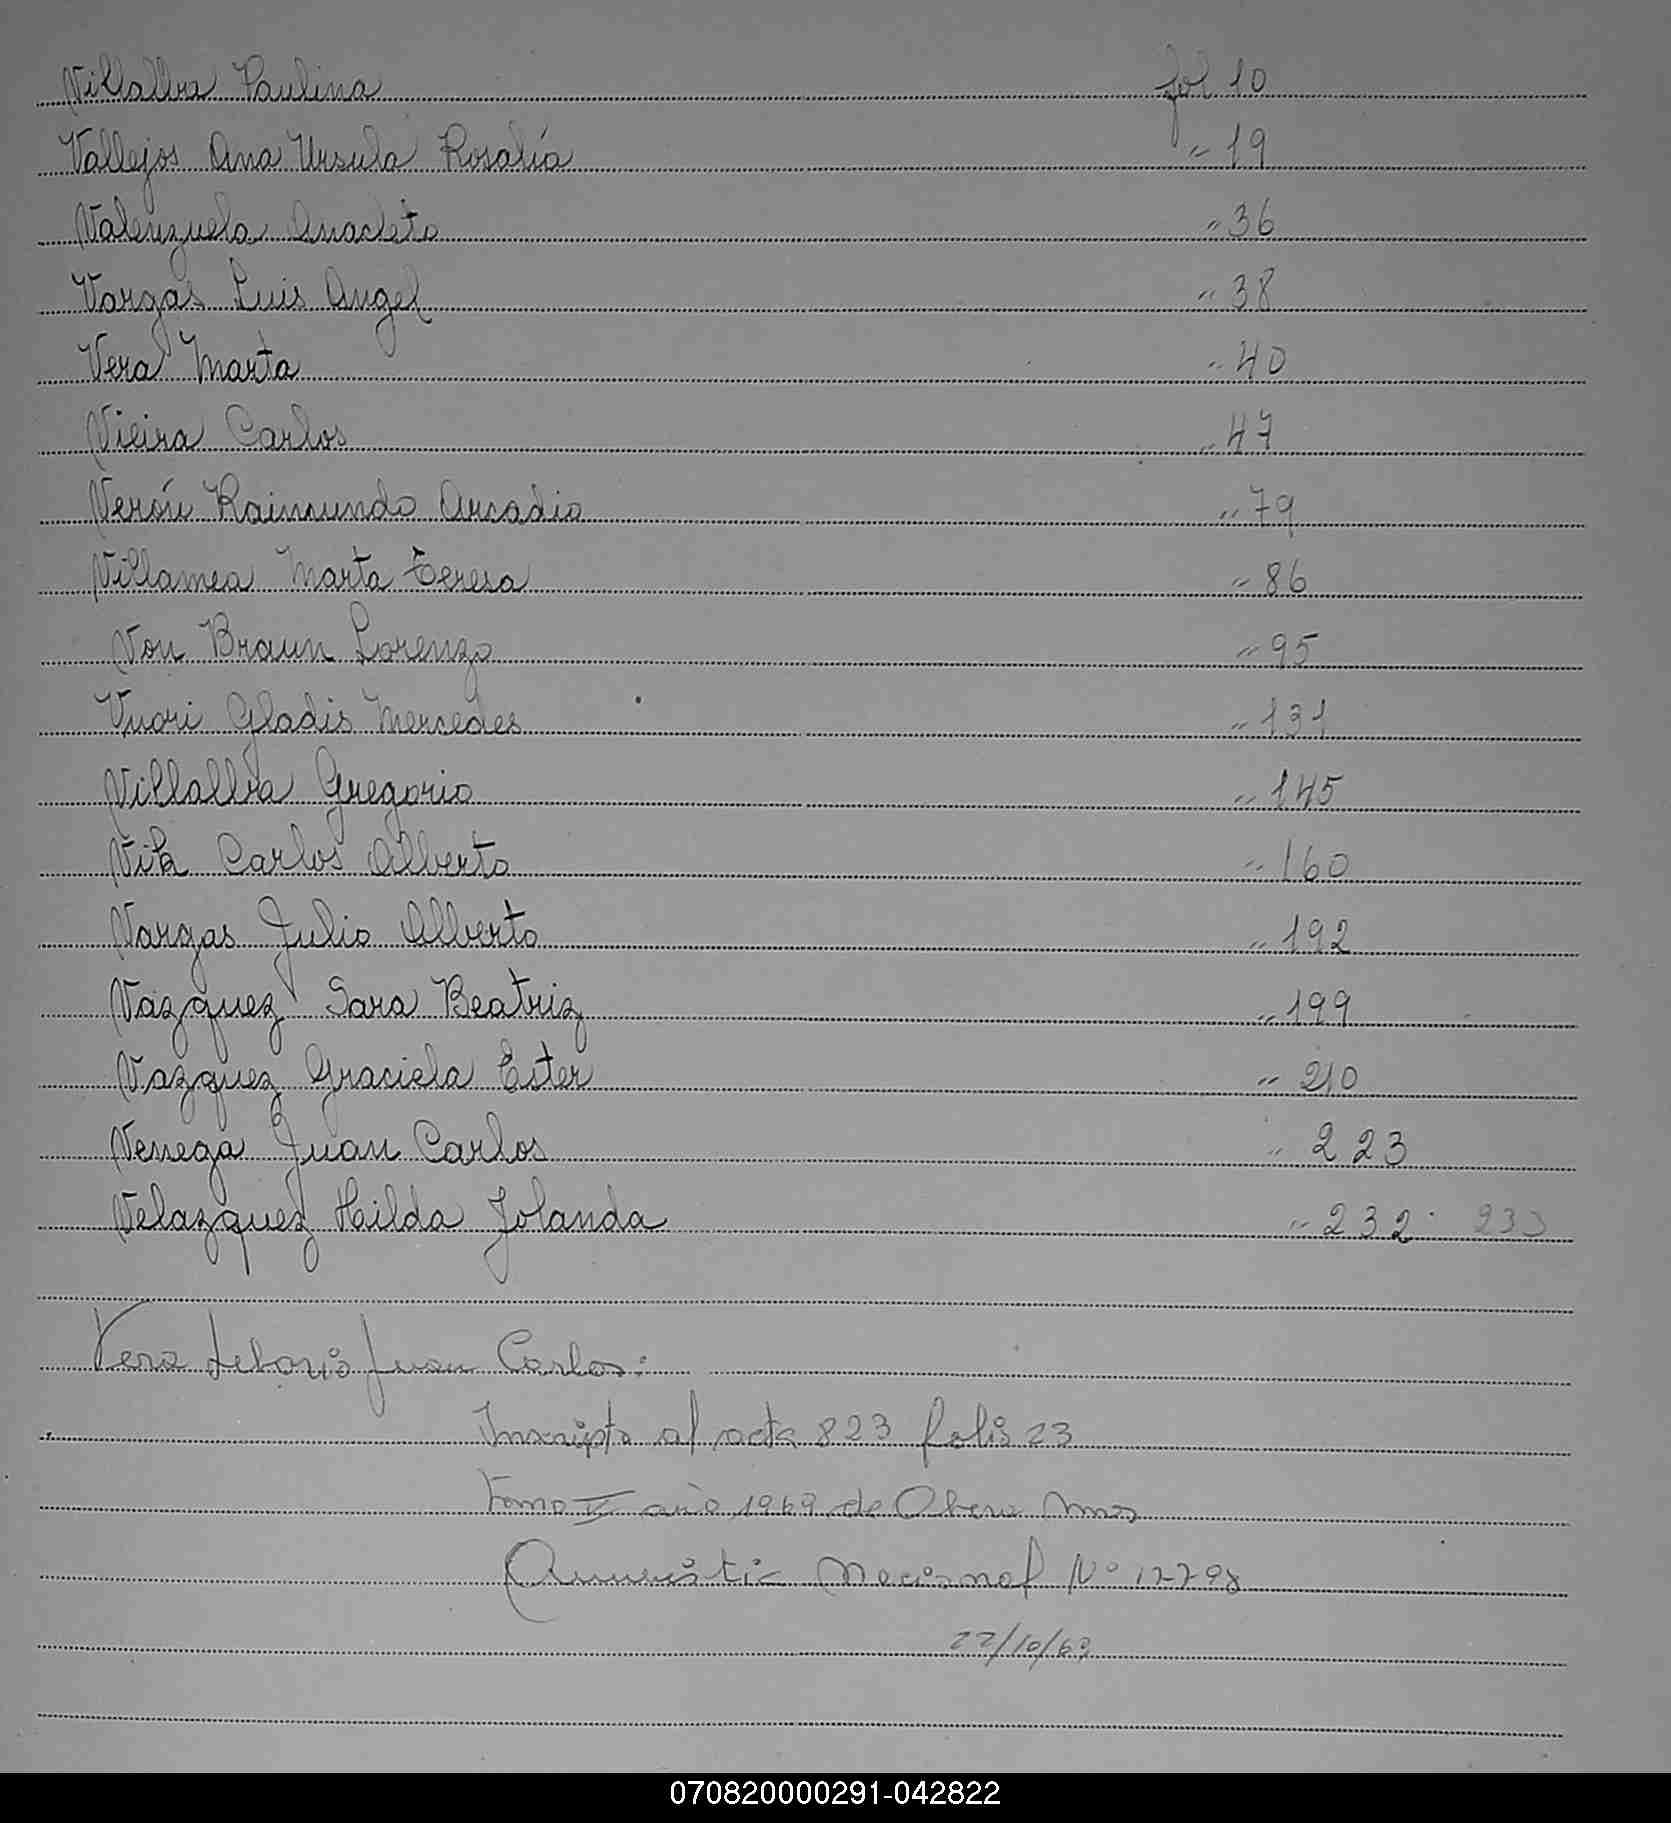 Villalba Paulina fol 10
Vallejos Ana Ursula Rosalía " 19
Valenzuela Anacleto " 36
Vargas Luis Angel " 38
Vera Marta " 40
Vieira Carlos " 47
Verón Raimundo Arcadio " 79
Villamea Marta Teresa " 86
Von Braun Lorenzo " 95
Vuori Gladis Mercedes " 131
Villalba Gregorio " 145
Vik Carlos Alberto " 160
Vargas Julio Alberto " 192
Vazquez Sara Beatriz " 199
Vazquez Graciela Ester " 210
Venega Juan Carlos " 223
Velazquez Hilda Jolanda " 232 233
Vera Juan Carlos:
Inscripto al acta 823 folio 23
tomo V año 1969 de Obera Mnes
Nacional Nº
22/10/69
070820000291-042822